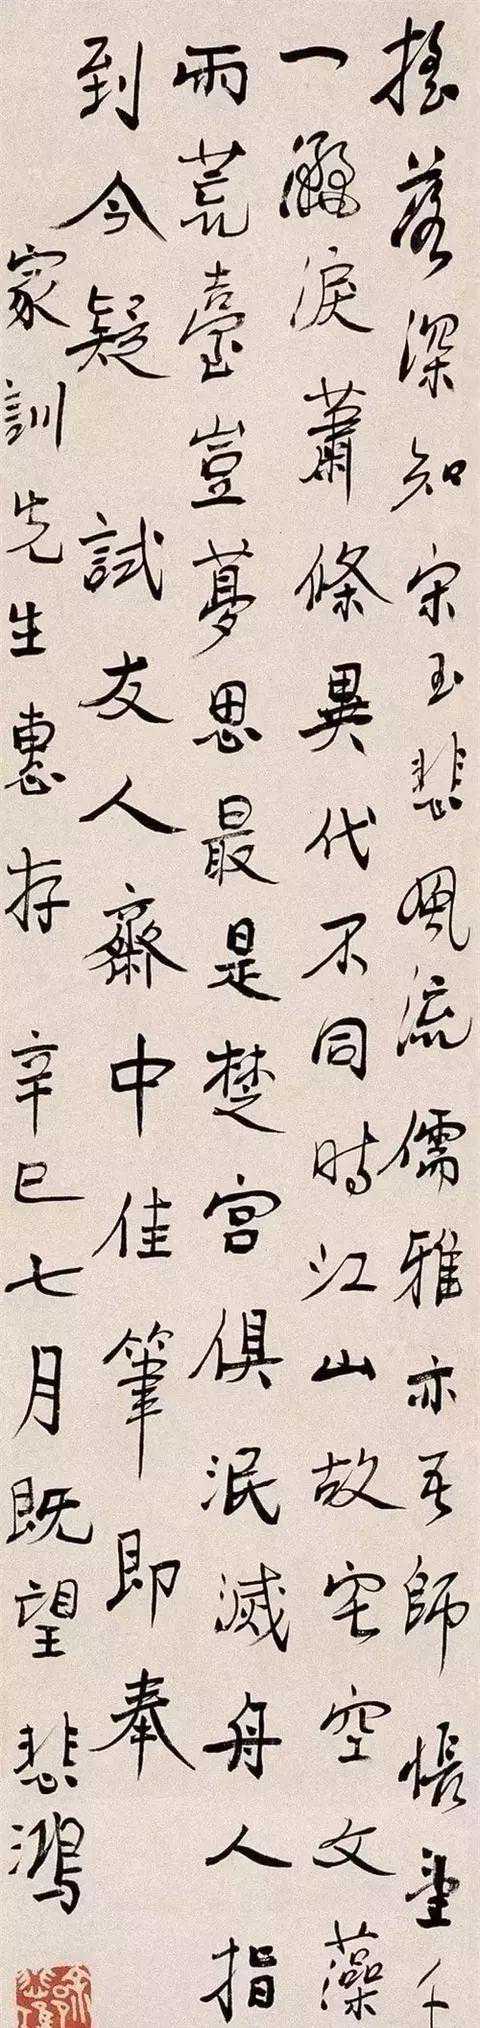 搖落深知宋玉悲風流儒雅亦吾師悵望千
一灑淚蕭條異代不同時江山故宅空文藻
雨荒臺豈夢思最是楚宮俱泯滅舟人指
到今疑 試友人齋中佳筆即奉
家訓先生惠存 辛巳七月既望 悲鴻